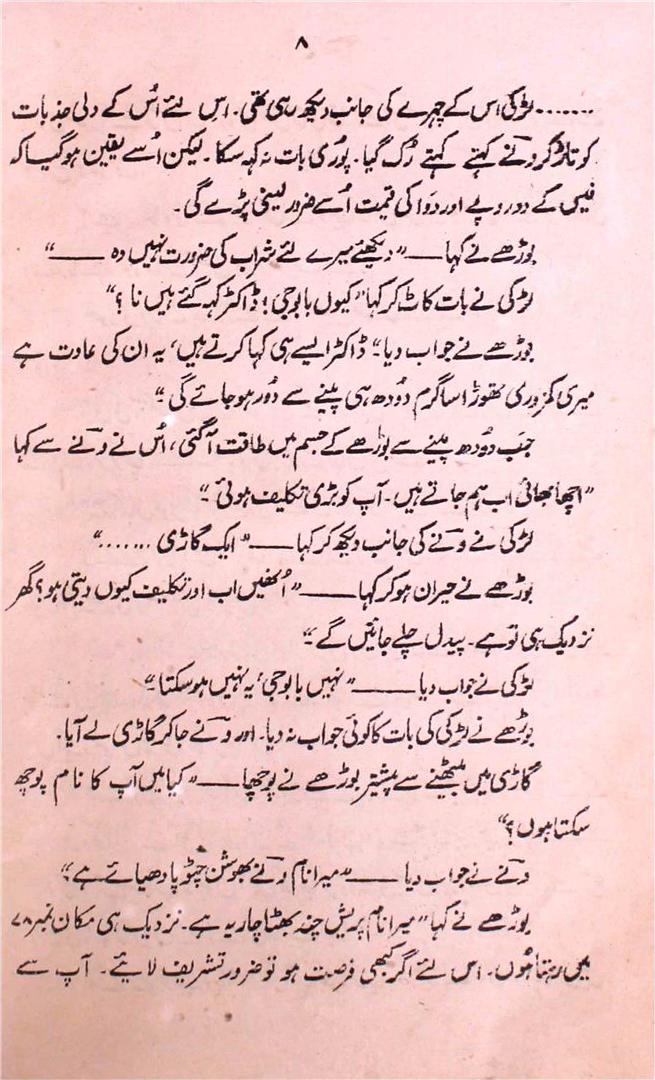 ۸
....... لڑکی اس کے چہرے کی جانب دیکھ رہی تھی۔ اس لئے اُس کے دلی جذبات
کو تاڑ کر ونے کہتے کہتے رُک گیا۔ پوری بات نہ کہہ سکا۔ لیکن اُسے یقین ہوگیا کہ
فیس کے دو روپے اور دَوا کی قیمت اُسے ضرور لینی پڑے گی۔
بوڑھے نے کہا ــــ "دیکھئے میرے لئے شراب کی ضرورت نہیں وہ ــــ"
لڑکی نے بات کاٹ کر کہا "کیوں بابوجی! ڈاکٹر کہہ گئے ہیں نا؟"
بوڑھے نے جواب دیا "ڈاکٹر ایسے ہی کہا کرتے ہیں، یہ ان کی عادت ہے
میری کمزوری تھوڑا سا گرم دُودھ ہی پینے سے دُور ہو جائے گی"
جب دُودھ پینے سے بوڑھے کے جسم میں طاقت آگئی، اُس نے ونے سے کہا
"اچھا بھائی اب ہم جاتے ہیں۔ آپ کو بڑی تکلیف ہوئی"
لڑکی نے ونے کی جانب دیکھ کر کہا ــــ "ایک گاڑی ......"
بوڑھے نے حیران ہو کر کہا ــــ "اُنھیں اب اور تکلیف کیوں دیتی ہو؟ گھر
نزدیک ہی تو ہے۔ پیدل چلے جائیں گے"
لڑکی نے جواب دیا ــــ "نہیں بابوجی، یہ نہیں ہو سکتا"
بوڑھے نے لڑکی کی بات کا کوئی جواب نہ دیا۔ اور ونے جا کر گاڑی لے آیا۔
گاڑی میں بیٹھنے سے پیشتر بوڑھے نے پوچھا ــــ "کیا میں آپ کا نام پوچھ
سکتا ہوں؟"
ونے نے جواب دیا ــــ "میرا نام ونے بھوشن چٹوپادھیائے ہے"
بوڑھے نے کہا "میرا نام پریش چند بھٹا چاریہ ہے۔ نزدیک ہی مکان نمبر ۷۸
میں رہتا ہُوں۔ اس لئے اگر کبھی فرصت ہو تو ضرور تشریف لائیے۔ آپ سے